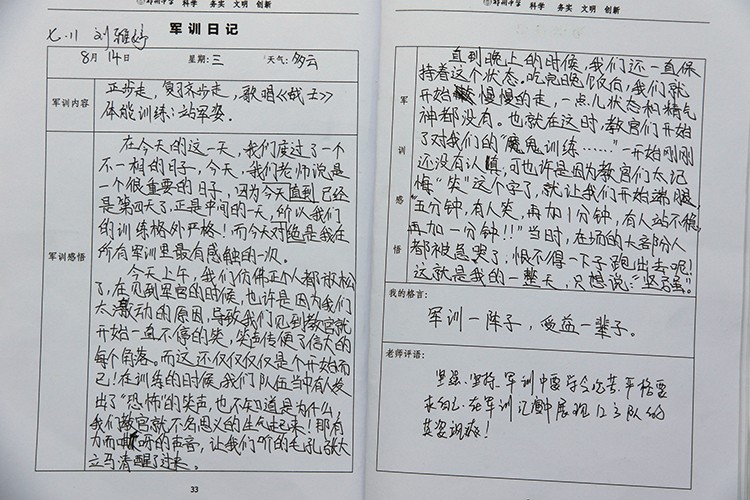 科学 务实 文明 创新
七.11 刘雅婷
军训日记
8月 14日 星期:三 天气:多云
军训内容
正步走,复习齐步走,歌唱《战士》
体能训练:站军姿。
军训感悟
在今天的这一天,我们度过了一个
不一相的日子,今天,我们老师说是
一个很重要的日子,因为今天直到已经
是第四天了,正是中间的一天,所以我们
的训练格外严格!而今天对绝是我在
所有军训里最有感触的一次.
今天上午,我们仿佛整个人都放松
了,在见到军官的时候,也许是因为我们
太激动的原因,导致我们见到教官就
开始一直不停的笑,笑声传便了信大的
每个角落。而这还仅仅仅仅是个开始而
已!在训练的时候,我们队伍当中有人发
出了"恐怖"的笑声,也不知道是为什么,
我们教官就不名思义的生气起来!那有
力而嘶呀的声音,让我们的毛孔张大
立马清醒了过来。
33
科学 务实 文明 创新
军训感悟
直到晚上的时候,我们还一直保
持着这个状态。吃完晚饭后,我们就
开始慢慢的走,一点儿状态和精气
神都没有。也就在这时,教官们开始
了对我们的"魔鬼训练……"一开始刚刚
还没有认真,可也许是因为教官们太记
悔"笑"这个字了,就让我们开始端腿,
"五分钟,有人笑,再加1分钟,有人站不稳,
再加一分钟!!"当时,在场的大部分人
都被急哭了,恨不得一下子跑出去呢!
这就是我的一整天,只想说:"坚强"。
我的格言:
军训一阵子,受益一辈子。
老师评语:
坚强、坚持、军训中要学会吃苦、严格要
求自己,在军训汇中展现
英姿飒爽!